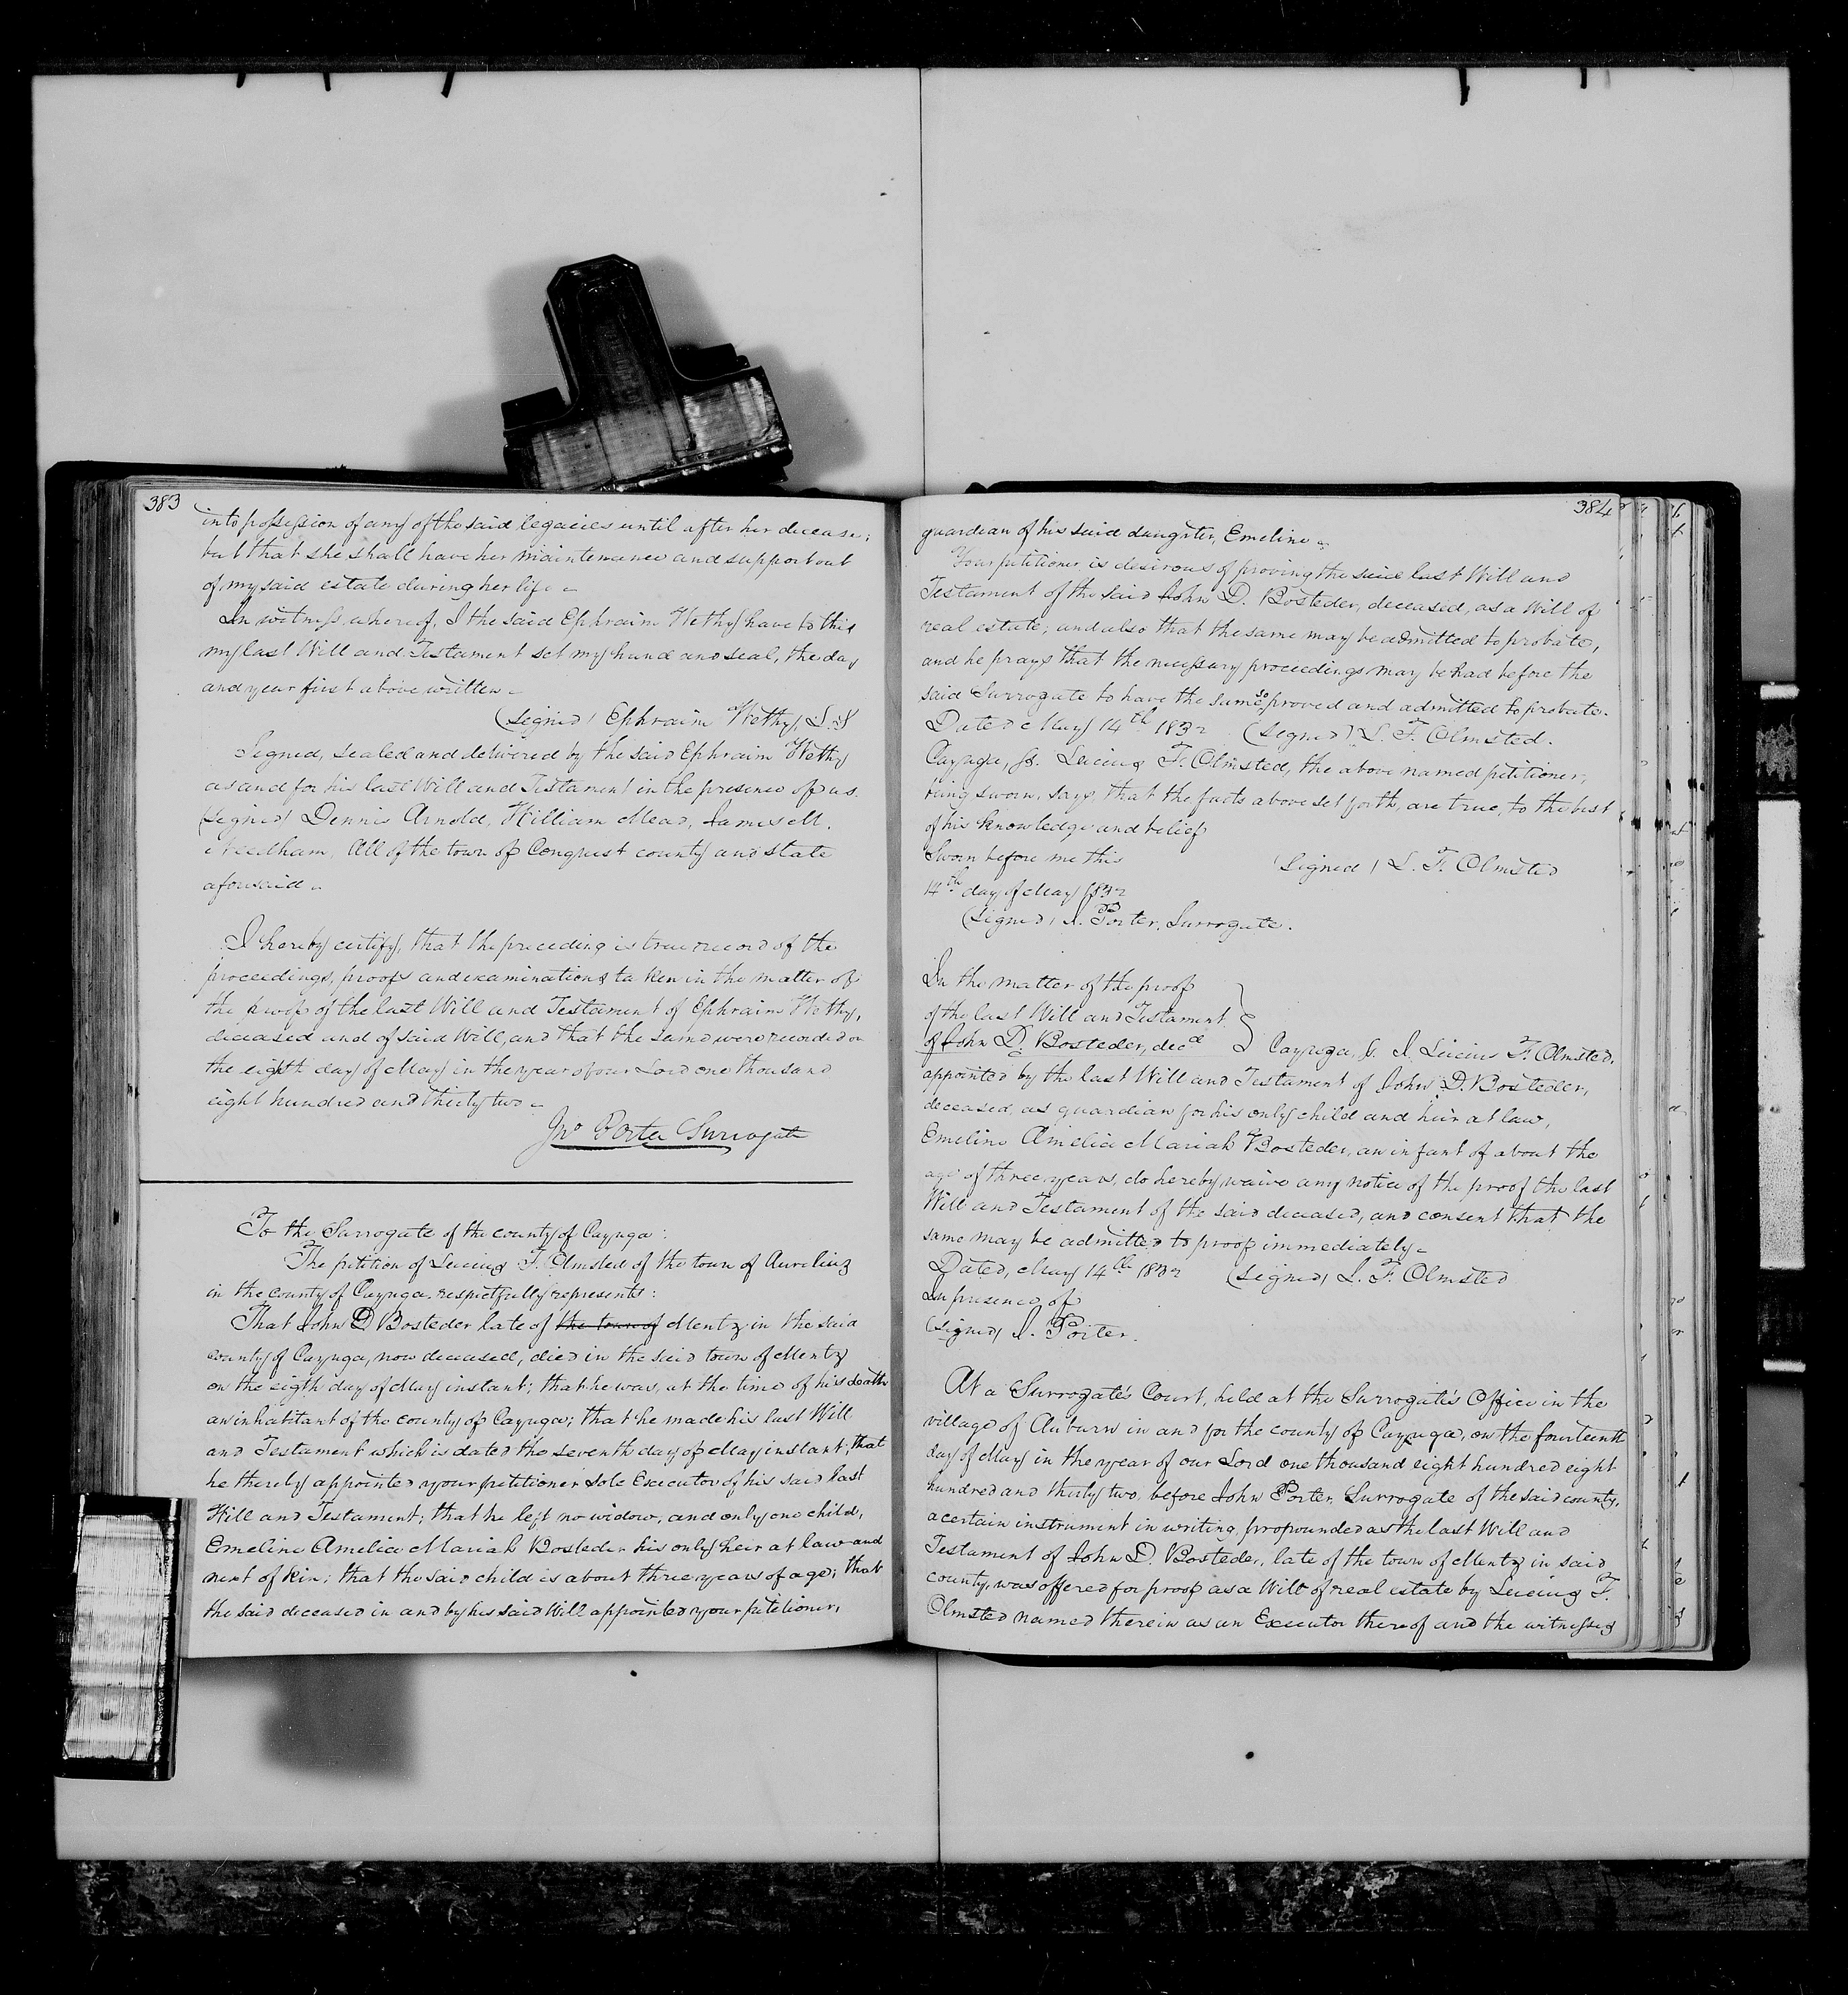 383
into possession of any of the said legacies until after her decease;
but that she shall have her maintenance and support out
of my said estate during her life –
In witness whereof, I the said Ephraim Wethy have to this
my last Will and Testament set my hand and seal, the day
and year first above written –
(Signed) Ephraim Wethy, L.S
Signed, sealed and delivered by the said Ephraim Wethy
as and for his last Will and Testament in the presence of us.
(Signed) Dennis Arnold, William Mead, James M.
Needham, All of the town of Conquest county and state
aforesaid –
I hereby certify, that the preceding is true record of the
proceedings, proofs and examinations taken in the matter of
the proof of the last Will and Testament of Ephraim Wethy,
deceased and of said Will, and that the same were recorded on
the eighth day of May in the year of our Lord one thousand
eight hundred and thirty two –
Jno Porter Surrogate
To the Surrogate of the county of Cayuga:
The petition of Lucius F. Olmsted of the town of Aurelius
in the county of Cayuga respectfully represents:
That John D Bosteder late of the town of Mentz in the said
county of Cayuga, now deceased, died in the said town of Mentz
on the eigth day of May instant; that he was, at the time of his death
an inhabitant of the county of Cayuga; that he made his last Will
and Testament which is dated the seventh day of May instant; that
he thereby appointed your petitioner sole Executor of his said last
Will and Testament; that he left no widow, and only one child,
Emeline Amelia Mariah Bosteder his only heir at law and
next of kin; that the said child is about three years of age; that
the said deceased in and by his said Will appointed your petitioner,
384
guardian of his said daughter, Emeline –
Your petitioner is desirous of proving the said last Will and
Testament of the said John D. Bosteder, deceased, as a Will of
real estate; and also that the same may be admitted to probate,
and he prays that the necessary proceedings may be had before the
said Surrogate to have the same so proved and admitted to probate.
Dated May 14th 1832 (Signed) L. F. Olmsted.
Cayuga, ss. Lucius F. Olmsted, the above named petitioner,
being sworn, says, that the facts above set forth, are true, to the best
of his knowledge and belief
Sworn before me this (Signed) L. F. Olmsted
14th day of May 1832
(Signed) J. Porter, Surrogate.
In the matter of the proof
of the last Will and Testament
of John D. Bosteder, decd } Cayuga, ss. I, Lucius F. Olmsted,
appointed by the last Will and Testament of John D. Bosteder,
deceased, as guardian for his only child and heir at law,
Emeline Amelia Mariah Bosteder, an infant of about the
age of three years, do hereby waive any notice of the proof the last
Will and Testament of the said deceased, and consent that the
same may be admitted to proof immediately –
Dated, May 14th 1832 (Signed) L. F. Olmsted
In presence of
(Signed) J. Porter.
At a Surrogate's Court, held at the Surrogate's Office in the
village of Auburn in and for the county of Cayuga, on the fourteenth
day of May in the year of our Lord one thousand eight hundred eight
hundred and thirty two, before John Porter, Surrogate of the said county,
a certain instrument in writing, propounded as the last Will and
Testament of John D. Bosteder, late of the town of Mentz in said
county, was offered for proof as a Will of real estate by Lucius F.
Olmsted named therein as an Executor thereof and the witnesses